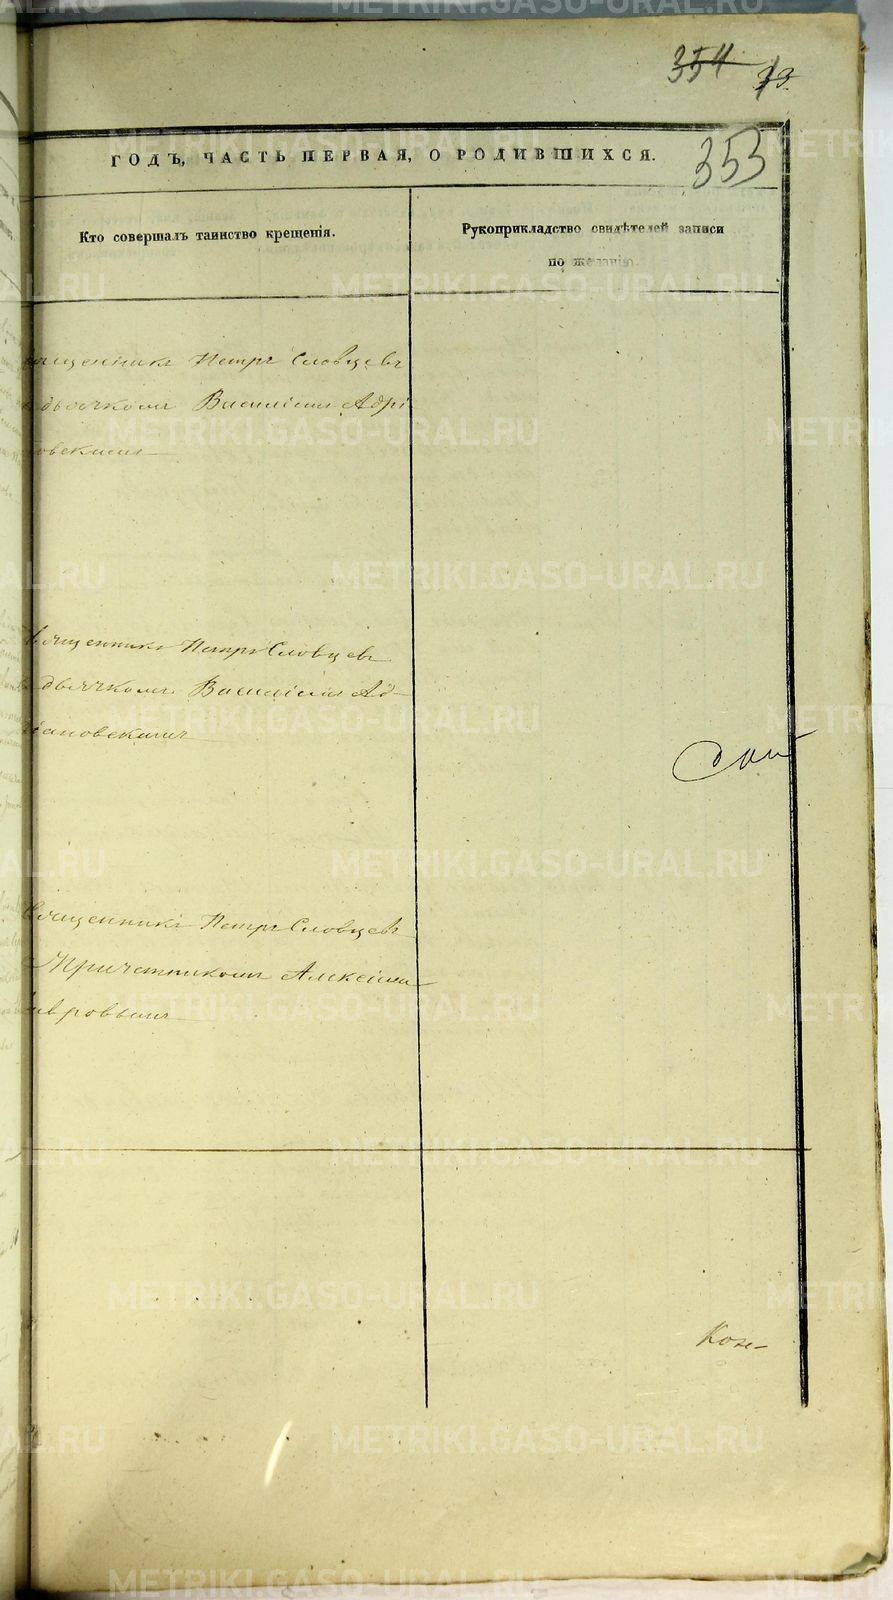 354
13.
353
ГОДЪ, ЧАСТЬ ПЕРВАЯ, О РОДИВШИХСЯ.
Кто совершалъ таинство крещенія.
Рукоприкладство свидѣтелей записи
по желанію.
священникъ Петръ Словцевъ
дьячкомъ Василіемъ Адрі
овскимъ
Священникъ Петръ Словцевъ
дьячкомъ Василіемъ Ад-
ріановскимъ
Священникъ Петръ Словцевъ
Причетникомъ Алексіемъ
авровымъ
Кон-
METRIKI.GASO-URAL.RU